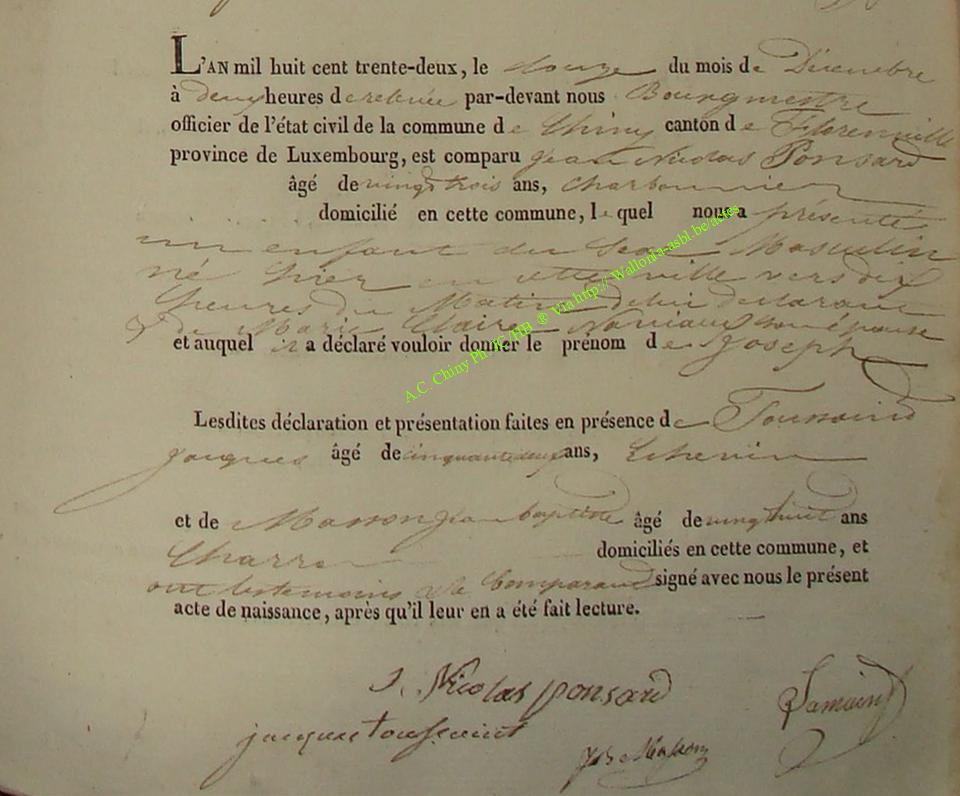 L'AN mil huit cent trente-deux, le douze du mois de Décembre
à deux heures de relevée par-devant nous Bourgmestre
officier de l'état civil de la commune de Chiny canton de Florenville
province de Luxembourg, est comparu Jean Nicolas Ponsard
âgé de vingt trois ans, Charbonnier
domicilié en cette commune, lequel nous a présenté
un enfant du Sexe Masculin
né hier en cette ville vers dix
heures du Matin de lui déclarant
& de Marie Claire Naviaux son épouse
et auquel il a déclaré vouloir donner le prénom de Joseph
Lesdites déclaration et présentation faites en présence de Toussaint
Jacques âgé de cinquante deux ans, Echevin
et de Masson jean baptiste âgé de vingt huit ans
Charron domiciliés en cette commune, et
ont les temoins & le Comparant signé avec nous le présent
acte de naissance, après qu'il leur en a été fait lecture.
J. Nicolas ponsard
jacques toussaint
JB Masson
A.C. Chiny Ph JC/HB ® Via http://Wallonia-asbl.be/actes